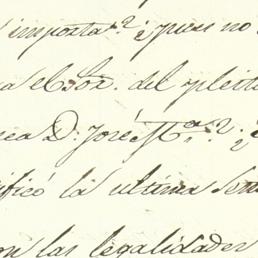 importa.? ¿pues no
a el Sor. del pleito
D.n José M.a ?
ificó la ultima Sen
on las legalidades